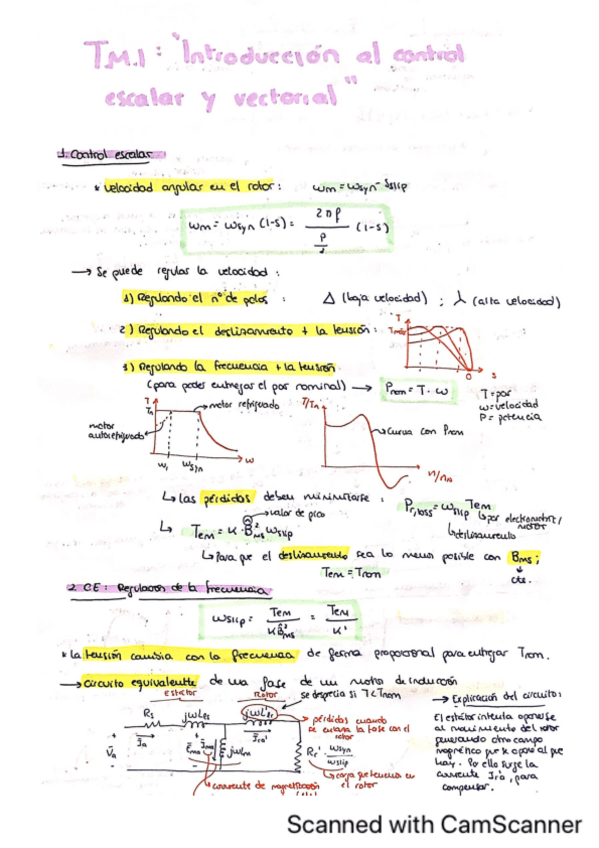 T.M.1: "Introducción al control
escalar y vectorial"
1. Control escalar
* Velocidad angular en el rotor: ωm = ωsyn - ωslip
ωm = ωsyn (1-s) = 2πf / (p/2) (1-s)
→ Se puede regular la velocidad:
1) Regulando el nº de polos: Δ (baja velocidad); ⅄ (alta velocidad)
2) Regulando el deslizamiento + la tensión:
T
0
s
3) Regulando la frecuencia + la tensión
(para poder entregar el par nominal) → Pnom = T · ω
T = par
ω = velocidad
P = potencia
T
Tn
motor refrigerado
motor
autorefrigerado
ω1
ωsyn
ω
T/Tn
curva con Pnom
n/nn
↳ las pérdidas deben minimizarse: Pr,loss = ωslip Tem
↳ par electromotriz/
motor
↳ deslizamiento
valor de pico
↳ Tem = K · B̂²ms ωslip
↳ Para que el deslizamiento sea lo menos posible con Bms;
cte.
Tem = Tnom
2. CE: Regulación de la frecuencia
ωslip = Tem / K B̂²ms = Tem / K'
* La tensión cambia con la frecuencia de forma proporcional para entregar Tnom.
→ Circuito equivalente de una fase de un motor de inducción
Estátor
Rotor
se desprecia si T<Tnom
Rs
jωLls
jωL'lr
V̄a
Īa
Ēma
Īma
jωLm
Īra'
Rr' ωsyn / ωslip
pérdidas cuando
se enlaza la fase con el
rotor
↳ carga que tenemos en
el rotor
↳ corriente de magnetización
→ Explicación del circuito:
El estátor intenta oponerse
al movimiento del rotor
generando otro campo
magnético que se opone al que
hay. Por ello surge la
corriente Ira', para
compensar.
Scanned with CamScanner